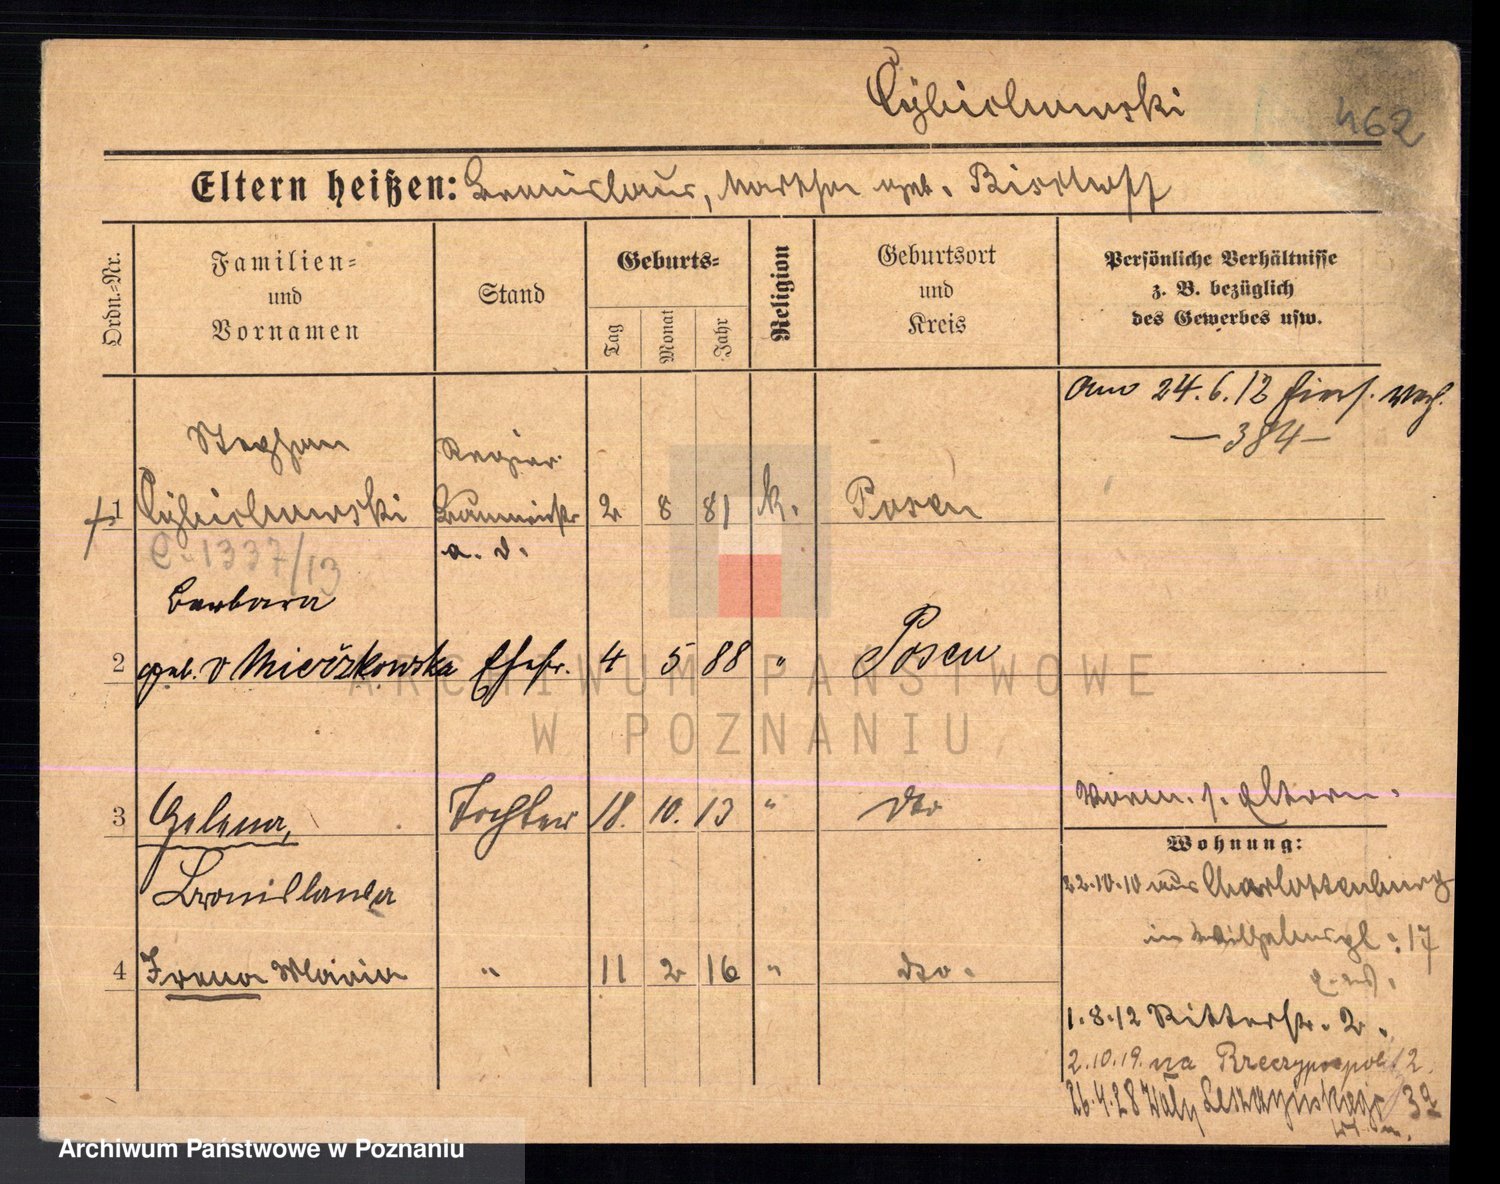 Cybichowski
462
Eltern heißen: Bronislaus, Martha geb. Bischoff
Ordn.-Nr.
Familien-
und
Vornamen
Stand
Geburts-
Tag
Monat
Jahr
Religion
Geburtsort
und
Kreis
Persönliche Verhältnisse
z. B. bezüglich
des Gewerbes usw.
24.6.12
—384—
Stephan
Regier.
1 Cybichowski Baumeister 2 8 81 k. Posen
a. D.
C. 1337/13
Barbara
2 geb. v Ehefr. 4 5 88 " Posen
3 Helena, Tochter 18. 10. 13 " dto
Bronislawa
4 Irena Maria " 11 2 16 " dto.
Vorm. s. Eltern.
Wohnung:
22.10.10 aus Charlottenburg
in Wilhelmspl. 17
1.8.12 Ritterstr. 2.
2.10.19. na Rzeczypospolit 2.
26.4.28 Wały Leszczyńskiego 3a
ARCHIWUM PAŃSTWOWE
W POZNANIU
Archiwum Państwowe w Poznaniu